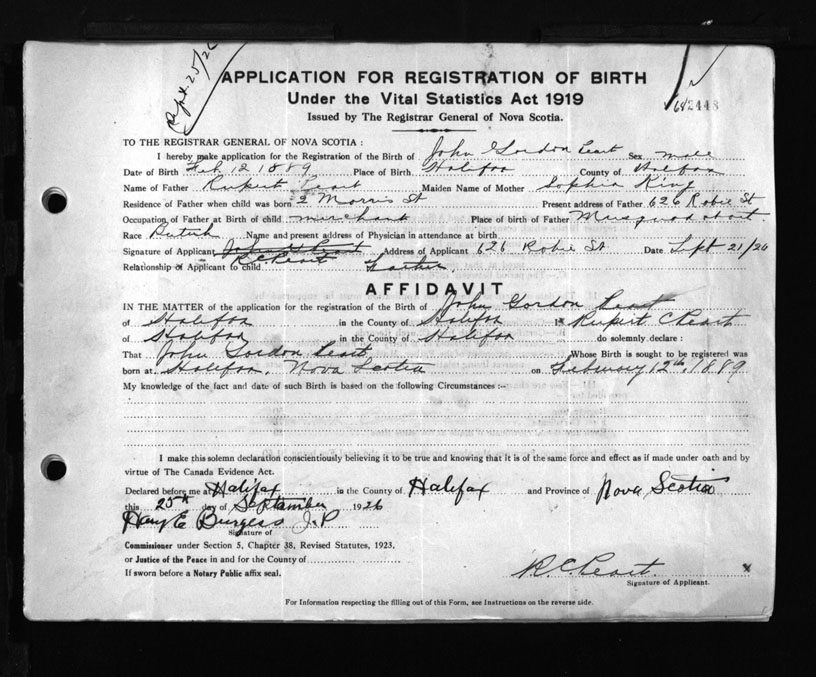 Sept. 25/26
APPLICATION FOR REGISTRATION OF BIRTH
Under the Vital Statistics Act 1919
Issued by The Registrar General of Nova Scotia.
2448
TO THE REGISTRAR GENERAL OF NOVA SCOTIA :
I hereby make application for the Registration of the Birth of John Gordon Peart Sex male
Date of Birth Feb. 12 1889 Place of Birth Halifax County of Halifax
Name of Father Rupert Peart Maiden Name of Mother Sophia King
Residence of Father when child was born 2 Morris St Present address of Father 626 Robie St
Occupation of Father at Birth of child merchant Place of birth of Father Musquodoboit
Race British Name and present address of Physician in attendance at birth
Signature of Applicant John G Peart Address of Applicant 626 Robie St Date Sept 21/26
R C Peart
Relationship of Applicant to child Father.
AFFIDAVIT
IN THE MATTER of the application for the registration of the Birth of John Gordon Peart
of Halifax in the County of Halifax I Rupert C Peart
of Halifax in the County of Halifax do solemnly declare :
That John Gordon Peart Whose Birth is sought to be registered was
born at Halifax, Nova Scotia on February 12th, 1889
My knowledge of the fact and date of such Birth is based on the following Circumstances :-
I make this solemn declaration conscientiously believing it to be true and knowing that it is of the same force and effect as if made under oath and by
virtue of The Canada Evidence Act.
Declared before me at Halifax in the County of Halifax and Province of Nova Scotia
this 25th day of September 1926
Harry E Burgess J.P
Signature of
Commissioner under Section 5, Chapter 38, Revised Statutes, 1923,
or Justice of the Peace in and for the County of
If sworn before a Notary Public affix seal.
R. C Peart.
Signature of Applicant.
For Information respecting the filling out of this Form, see Instructions on the reverse side.